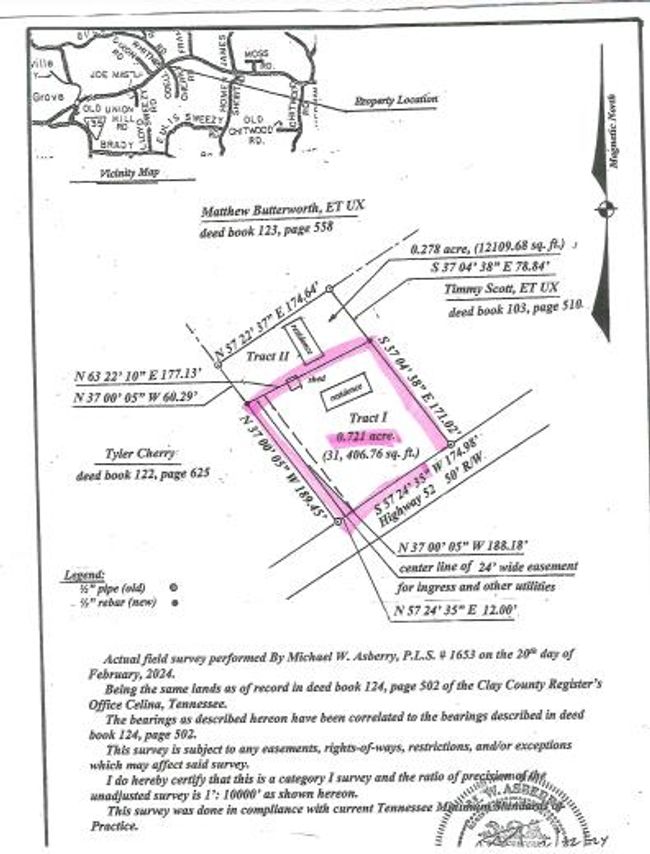 MOSS
RD.
JOE MIST
Grove
OLD UNION
HILL
RD
SWEEZY
RD
SWEEZY
OLD
CHITWOOD
RD.
BRADY
Property Location
Vicinity Map
Magnetic North
Matthew Butterworth, ET UX
deed book 123, page 558
0.278 acre, (12109.68 sq. ft.)
S 37 04' 38" E 78.84'
Timmy Scott, ET UX
deed book 103, page 510
N 57 22' 37" E 174.64'
residence
Tract II
N 63 22' 10" E 177.13'
N 37 00' 05" W 60.29'
shed
residence
S 37 04' 38" E 171.02'
Tract I
0.721 acre.
(31, 406.76 sq. ft.)
N 37 00' 05" W 189.45'
Tyler Cherry
deed book 122, page 625
S 57 24' 35" W 174.98'
Highway 52 50' R/W
N 37 00' 05" W 188.18'
center line of 24' wide easement
for ingress and other utilities
N 57 24' 35" E 12.00'
Legend:
½" pipe (old)
½" rebar (new)
Actual field survey performed By Michael W. Asberry, P.L.S. # 1653 on the 20th day of
February, 2024.
Being the same lands as of record in deed book 124, page 502 of the Clay County Register's
Office Celina, Tennessee.
The bearings as described hereon have been correlated to the bearings described in deed
book 124, page 502.
This survey is subject to any easements, rights-of-ways, restrictions, and/or exceptions
which may affect said survey.
I do hereby certify that this is a category I survey and the ratio of precision of the
unadjusted survey is 1': 10000' as shown hereon.
This survey was done in compliance with current Tennessee Minimum Standards of
Practice.
W. ASBERRY